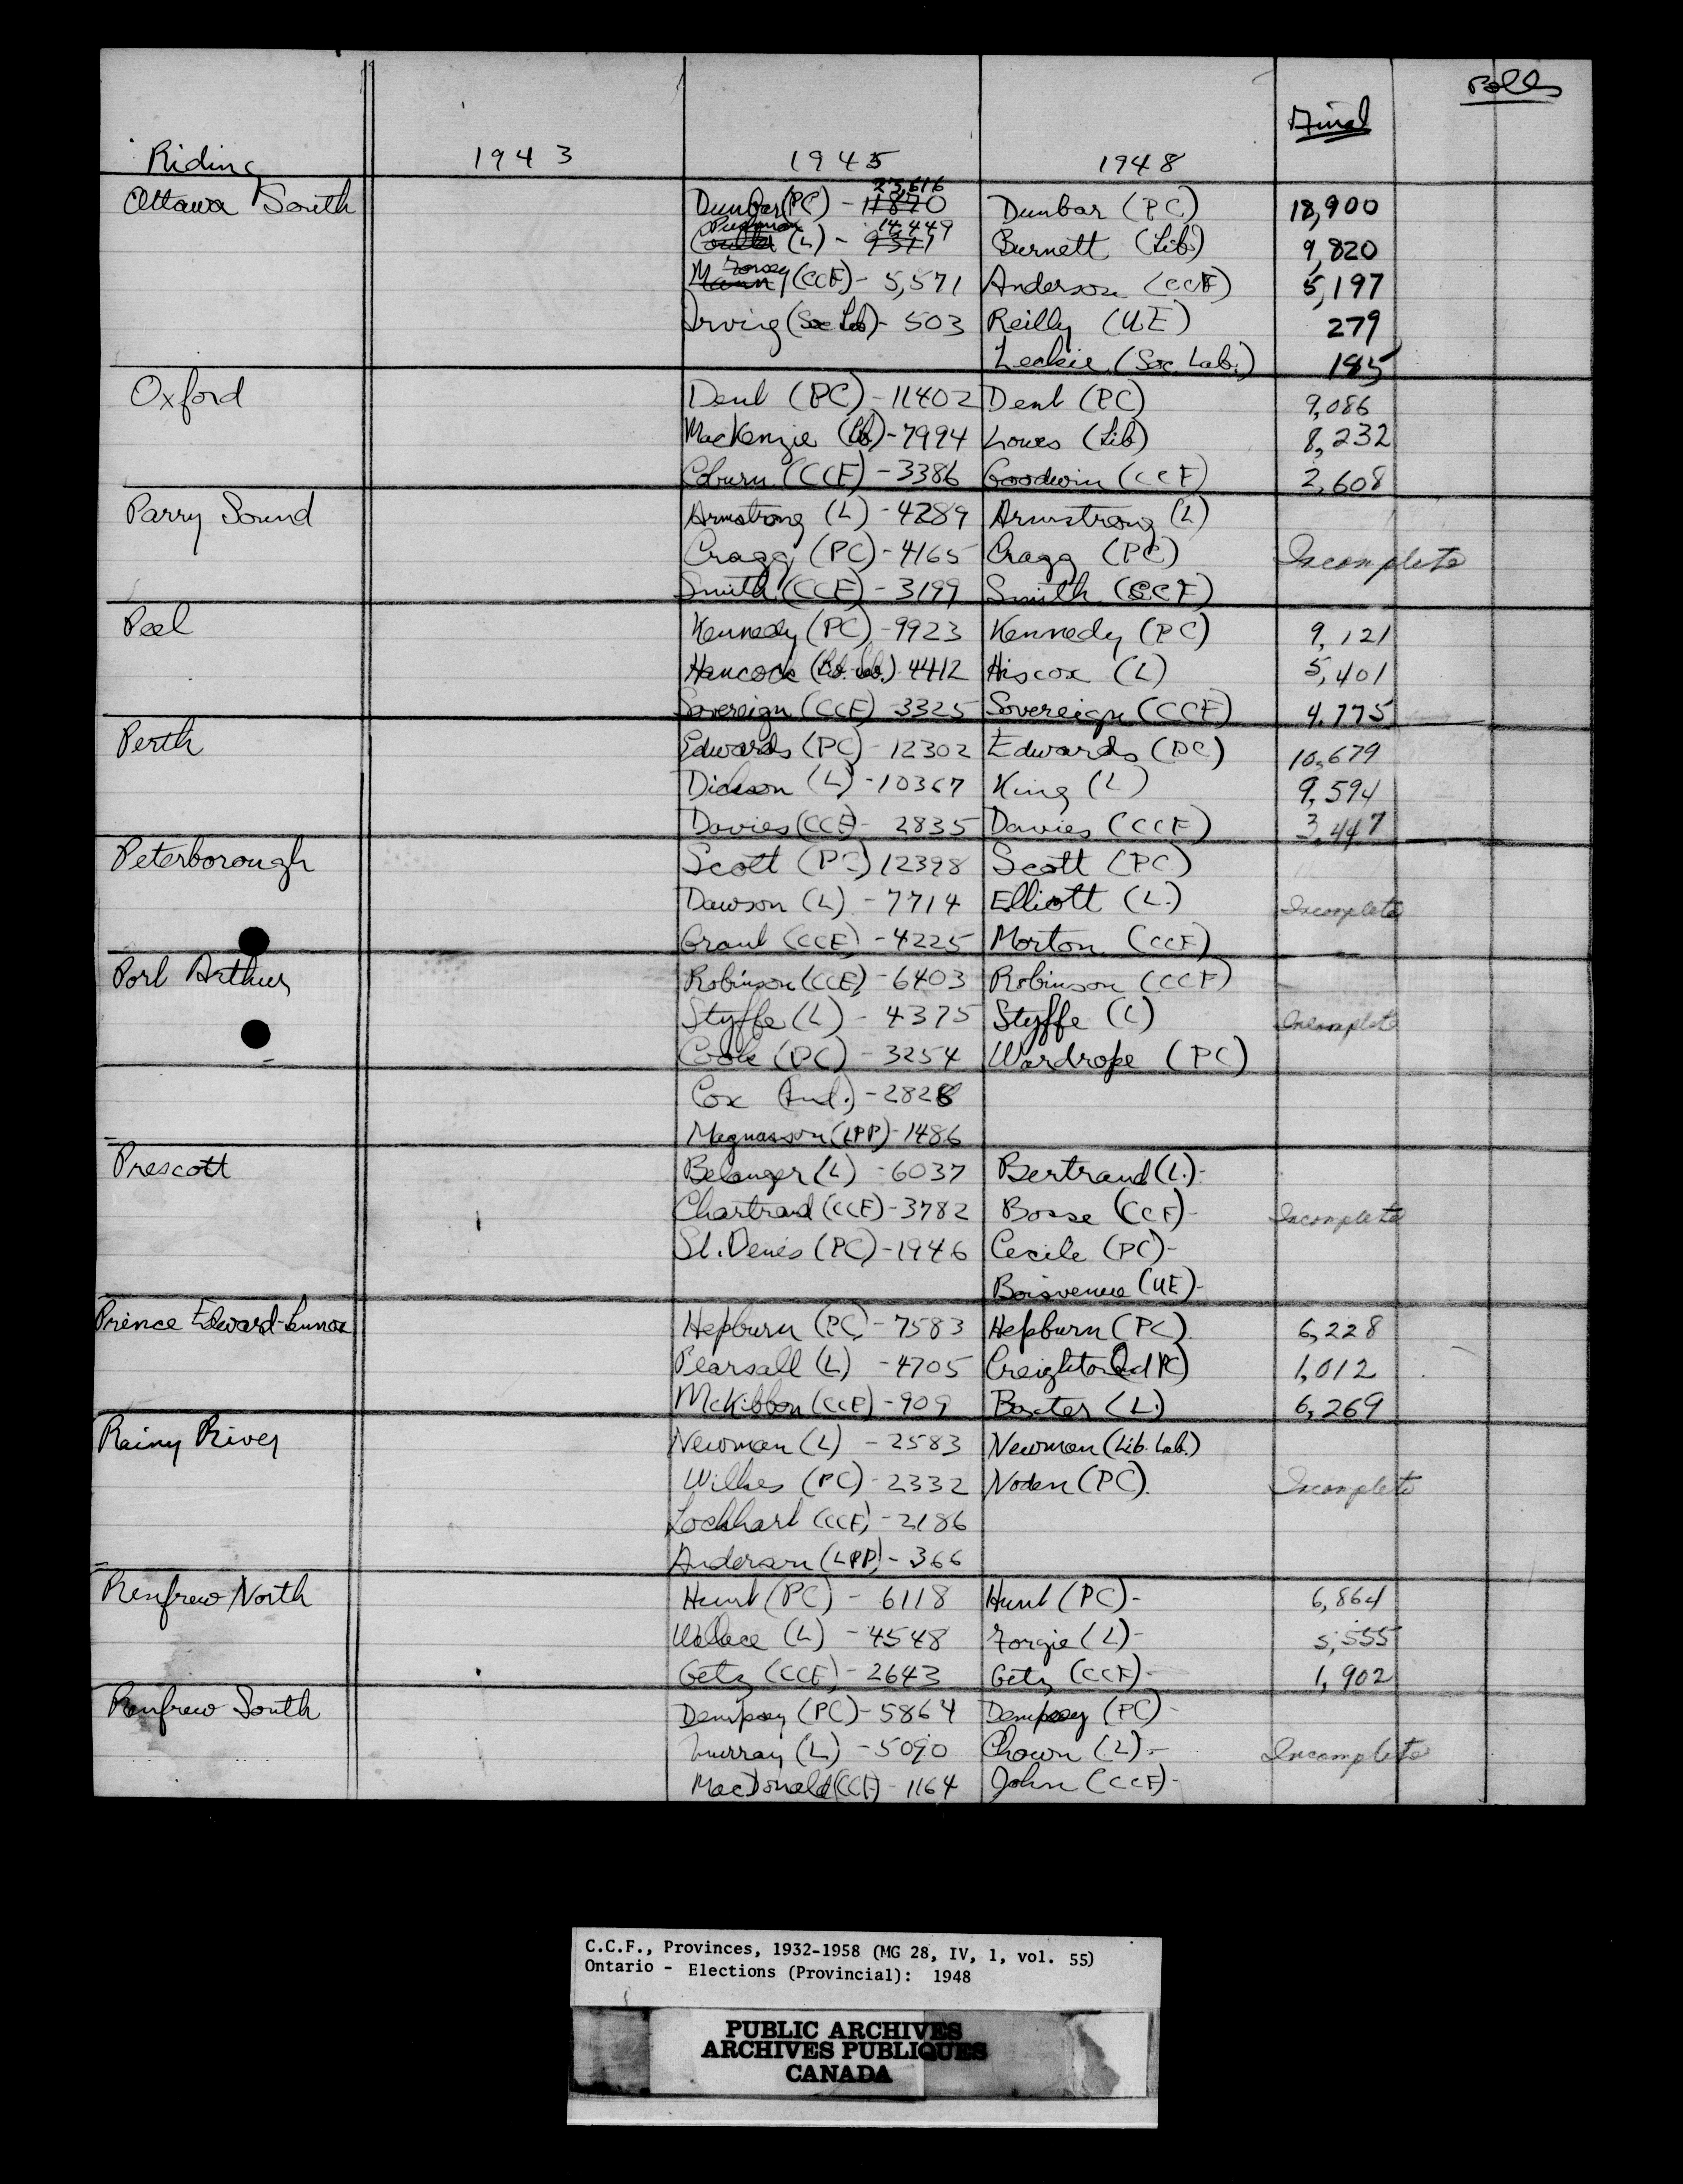 Polls
Final
Riding 1943 1945 1948
23,616
Ottawa South Dunbar (PC) - 11870 Dunbar (PC) 18,900
14,449
(L) - 9371 Burnett (Lib) 9,820
(CCF) - 5,571 Anderson (CCF) 5,197
Irving (Soc Lab) - 503 Reilly (UE) 279
Leckie (Soc. Lab.) 185
Oxford Dent (PC) - 11402 Dent (PC) 9,086
MacKenzie (Lib) - 7994 Lowes (Lib) 8,232
Coburn (CCF) - 3386 Goodwin (CCF) 2,608
Parry Sound Armstrong (L) - 4289 Armstrong (L)
Cragg (PC) - 4165 Cragg (PC) Incomplete
Smith (CCF) - 3199 Smith (CCF)
Peel Kennedy (PC) - 9923 Kennedy (PC) 9,121
Hancock (Lib. Lab.) 4412 Hiscox (L) 5,401
Sovereign (CCF) 3325 Sovereign (CCF) 4,775
Perth Edwards (PC) - 12302 Edwards (PC) 10,679
Dickson (L) - 10367 King (L) 9,594
Davies (CCF) - 2835 Davies (CCF) 3,447
Peterborough Scott (PC) 12398 Scott (PC)
Dawson (L) - 7714 Elliott (L.) Incomplete
Grant (CCF) - 4225 Morton (CCF)
Port Arthur Robinson (CCF) - 6403 Robinson (CCF)
Styffe (L) - 4375 Styffe (L) Incomplete
Cook (PC) - 3254 Wardrope (PC)
Cox (Ind.) - 2828
Magnusson (LPP) - 1486
Prescott Belanger (L) - 6037 Bertrand (L.) -
Chartrand (CCF) - 3782 Bosse (CCF) - Incomplete
St. Denis (PC) - 1946 Cecile (PC) -
Boisvenue (UE) -
Prince Edward-Lennox Hepburn (PC) - 7583 Hepburn (PC) 6,228
Pearsall (L) - 4705 Creighton (Ind PC) 1,012
McKibbon (CCF) - 909 Baxter (L.) 6,269
Rainy River Newman (L) - 2583 Newman (Lib. Lab.)
Wilkes (PC) - 2332 Noden (PC) Incomplete
Lockhart (CCF) - 2186
Anderson (LPP) - 366
Renfrew North Hunt (PC) - 6118 Hunt (PC) - 6,864
Wallace (L) - 4548 Forgie (L) - 5,555
Getz (CCF) - 2643 Getz (CCF) - 1,902
Renfrew South Dempsey (PC) - 5864 Dempsey (PC) -
Murray (L) - 5090 Chown (L) - Incomplete
MacDonald (CCF) - 1164 John (CCF) -
C.C.F., Provinces, 1932-1958 (MG 28, IV, 1, vol. 55)
Ontario - Elections (Provincial): 1948
PUBLIC ARCHIVES
ARCHIVES PUBLIQUES
CANADA